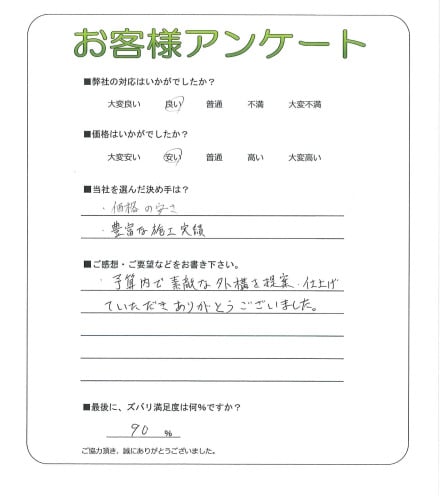 お客様アンケート
■弊社の対応はいかがでしたか?
大変良い 良い 普通 不満 大変不満
■価格はいかがでしたか?
大変安い 安い 普通 高い 大変高い
■当社を選んだ決め手は?
・価格の安さ
・豊富な施工実績
■ご感想・ご要望などをお書き下さい。
・予算内で素敵な外構を提案・仕上げ
ていただきありがとうございました。
■最後に、ズバリ満足度は何%ですか?
90 %
ご協力頂き、誠にありがとうございました。